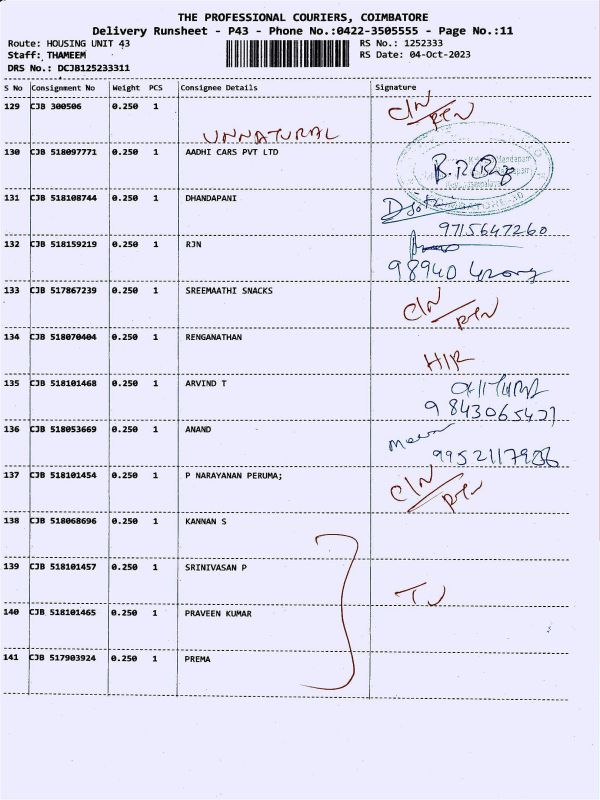 THE PROFESSIONAL COURIERS, COIMBATORE
Delivery Runsheet - P43 - Phone No.:0422-3505555 - Page No.:11
Route: HOUSING UNIT 43 RS No.: 1252333
Staff: THAMEEM RS Date: 04-Oct-2023
DRS No.: DCJB125233311
S No Consignment No Weight PCS Consignee Details Signature
129 CJB 300506 0.250 1 C/N
UNNATURAL
130 CJB 518097771 0.250 1 AADHI CARS PVT LTD
131 CJB 518108744 0.250 1 DHANDAPANI
9715647260
132 CJB 518159219 0.250 1 RJN
98940
133 CJB 517867239 0.250 1 SREEMAATHI SNACKS C/N
134 CJB 518070404 0.250 1 RENGANATHAN
H/R
135 CJB 518101468 0.250 1 ARVIND T
136 CJB 518053669 0.250 1 ANAND
137 CJB 518101454 0.250 1 P NARAYANAN PERUMA; C/N
138 CJB 518068696 0.250 1 KANNAN S
139 CJB 518101457 0.250 1 SRINIVASAN P
140 CJB 518101465 0.250 1 PRAVEEN KUMAR
141 CJB 517903924 0.250 1 PREMA